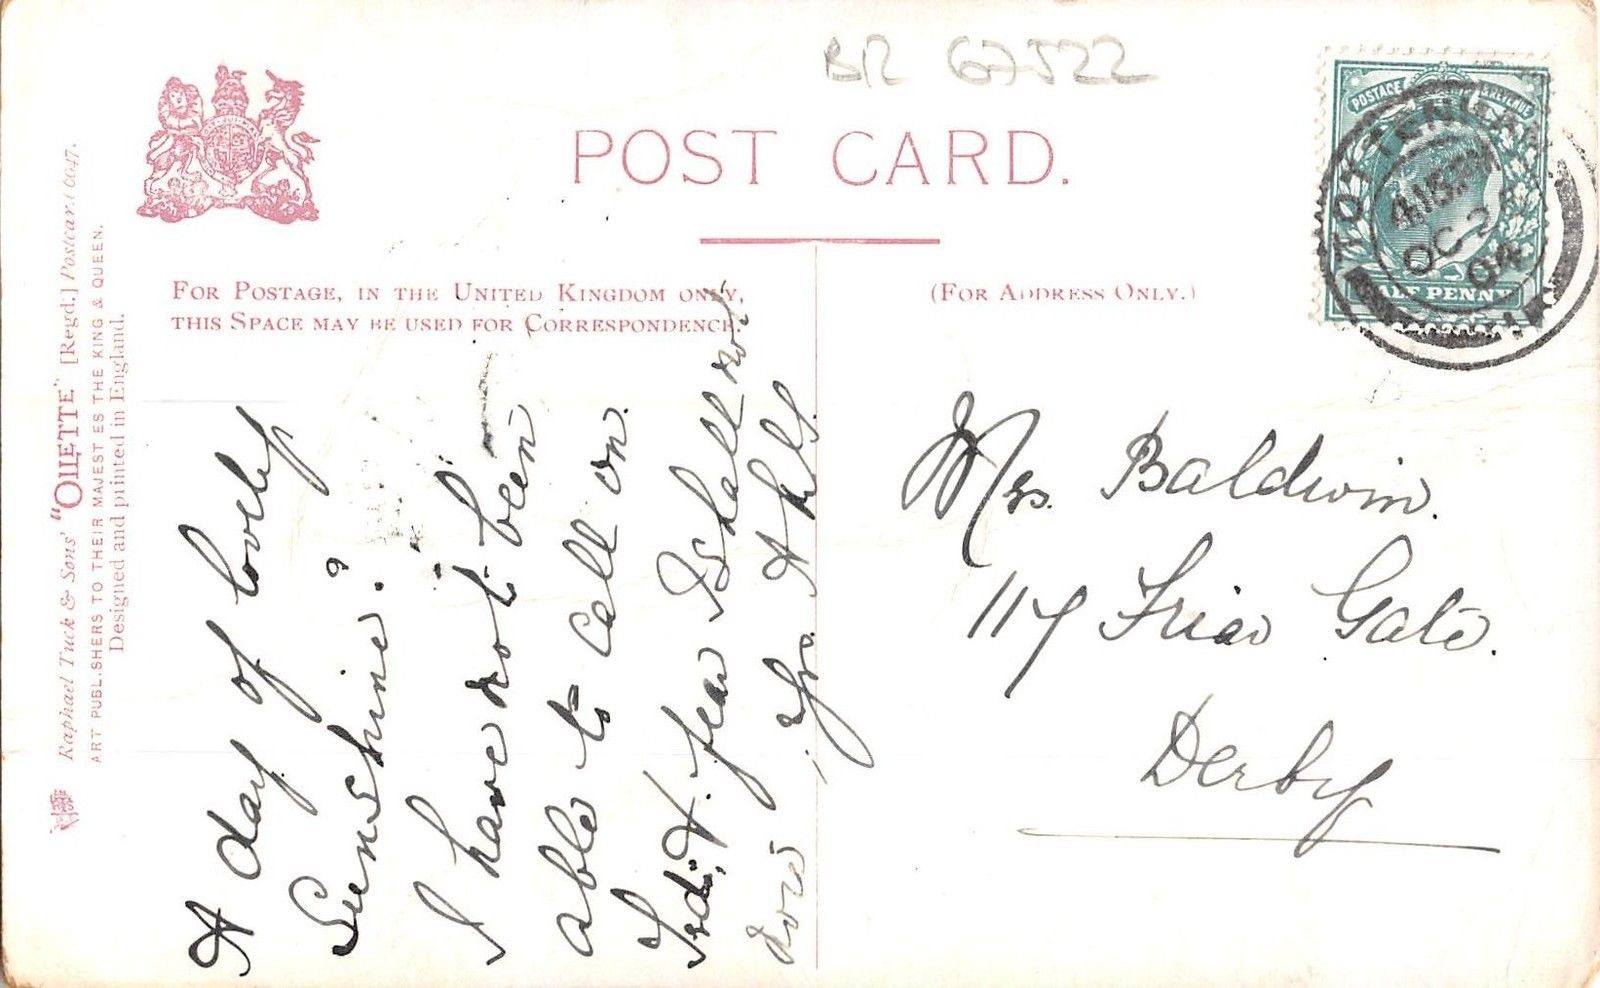 BR 67522
POST CARD.
FOR POSTAGE, IN THE UNITED KINGDOM ONLY,
THIS SPACE MAY BE USED FOR CORRESPONDENCE.
(FOR ADDRESS ONLY.)
Raphael Tuck & Sons' "OILETTE" [Regd.] Postcard 6047.
ART PUBLISHERS TO THEIR MAJESTIES THE KING & QUEEN.
Designed and printed in England.
POSTAGE & REVENUE
HALF PENNY
TOTTENHAM
4.15 PM
OC 2
04
A day of lovely
Sunshine.
I have not been
able to call on
H. fear I shall not
Yrs.
Mrs. Baldwin.
117 Friar Gate.
Derby